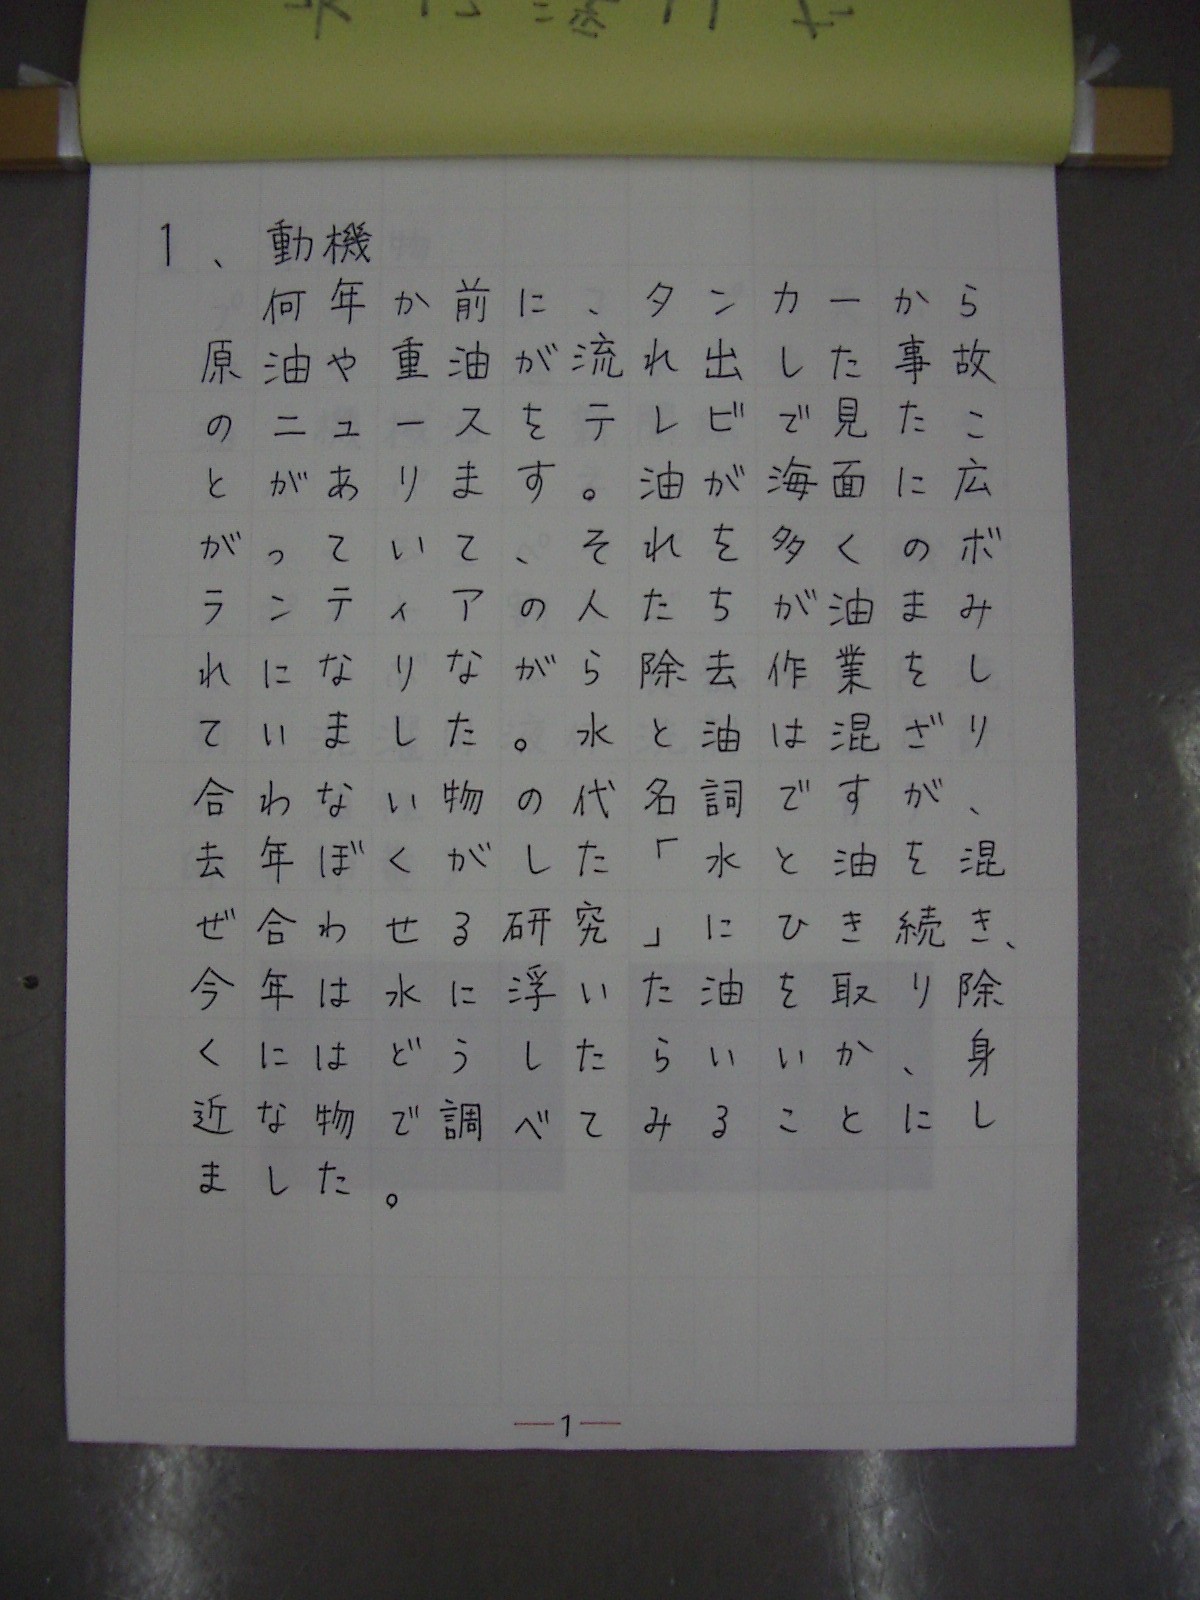 1、動機
何年か前に、タンカーから
原油や重油が流れ出した事故
のニュースをテレビで見たこ
とがあります。油が海面に広
がっていて、それを多くのボ
ランティアの人たちが油まみ
れになりながら除去作業をし
ていました。水と油は混ざり
合わない物の代名詞ですが、
去年ぼくがした「水と油を混
ぜ合わせる研究」にひき続き、
今年は水に浮いた油を取り除
くにはどうしたらいいか、身
近な物で調べてみることにし
ました。
1